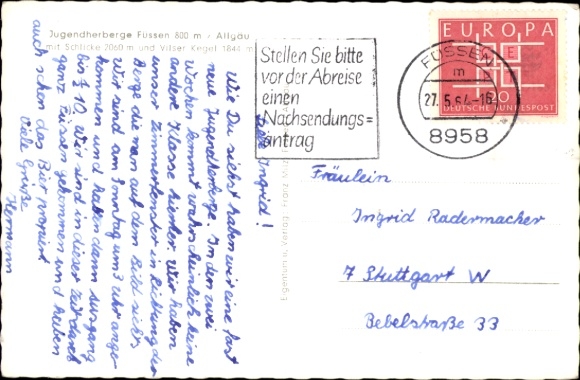 Jugendherberge Füssen 800 m - Allgäu
mit Schlicke 2060 m und Vilser Kegel 1844 m
Liebe Ingrid!
Wie Du siehst haben wir eine fast
neue Jugendherberge. In den zwei
Wochen kommt wahrscheinlich keine
andere Klasse hierher. Wir haben
unser Zimmerfenster in Richtung der
Berge die man auf dem Bild sieht.
Wir sind am Sonntag um 3 Uhr ange-
kommen und haben dann Ausgang
bis ½ 10. Wir sind in dieser Zeit durch
ganz Füssen gekommen und haben
auch schon das Bier probiert.
Viele Grüße
Hermann
Stellen Sie bitte
vor der Abreise
einen
Nachsendungs=
antrag
FÜSSEN
m
27.5.64-16
8958
EUROPA
20
DEUTSCHE BUNDESPOST
Fräulein
Ingrid Radermacher
7 Stuttgart W
Bebelstraße 33